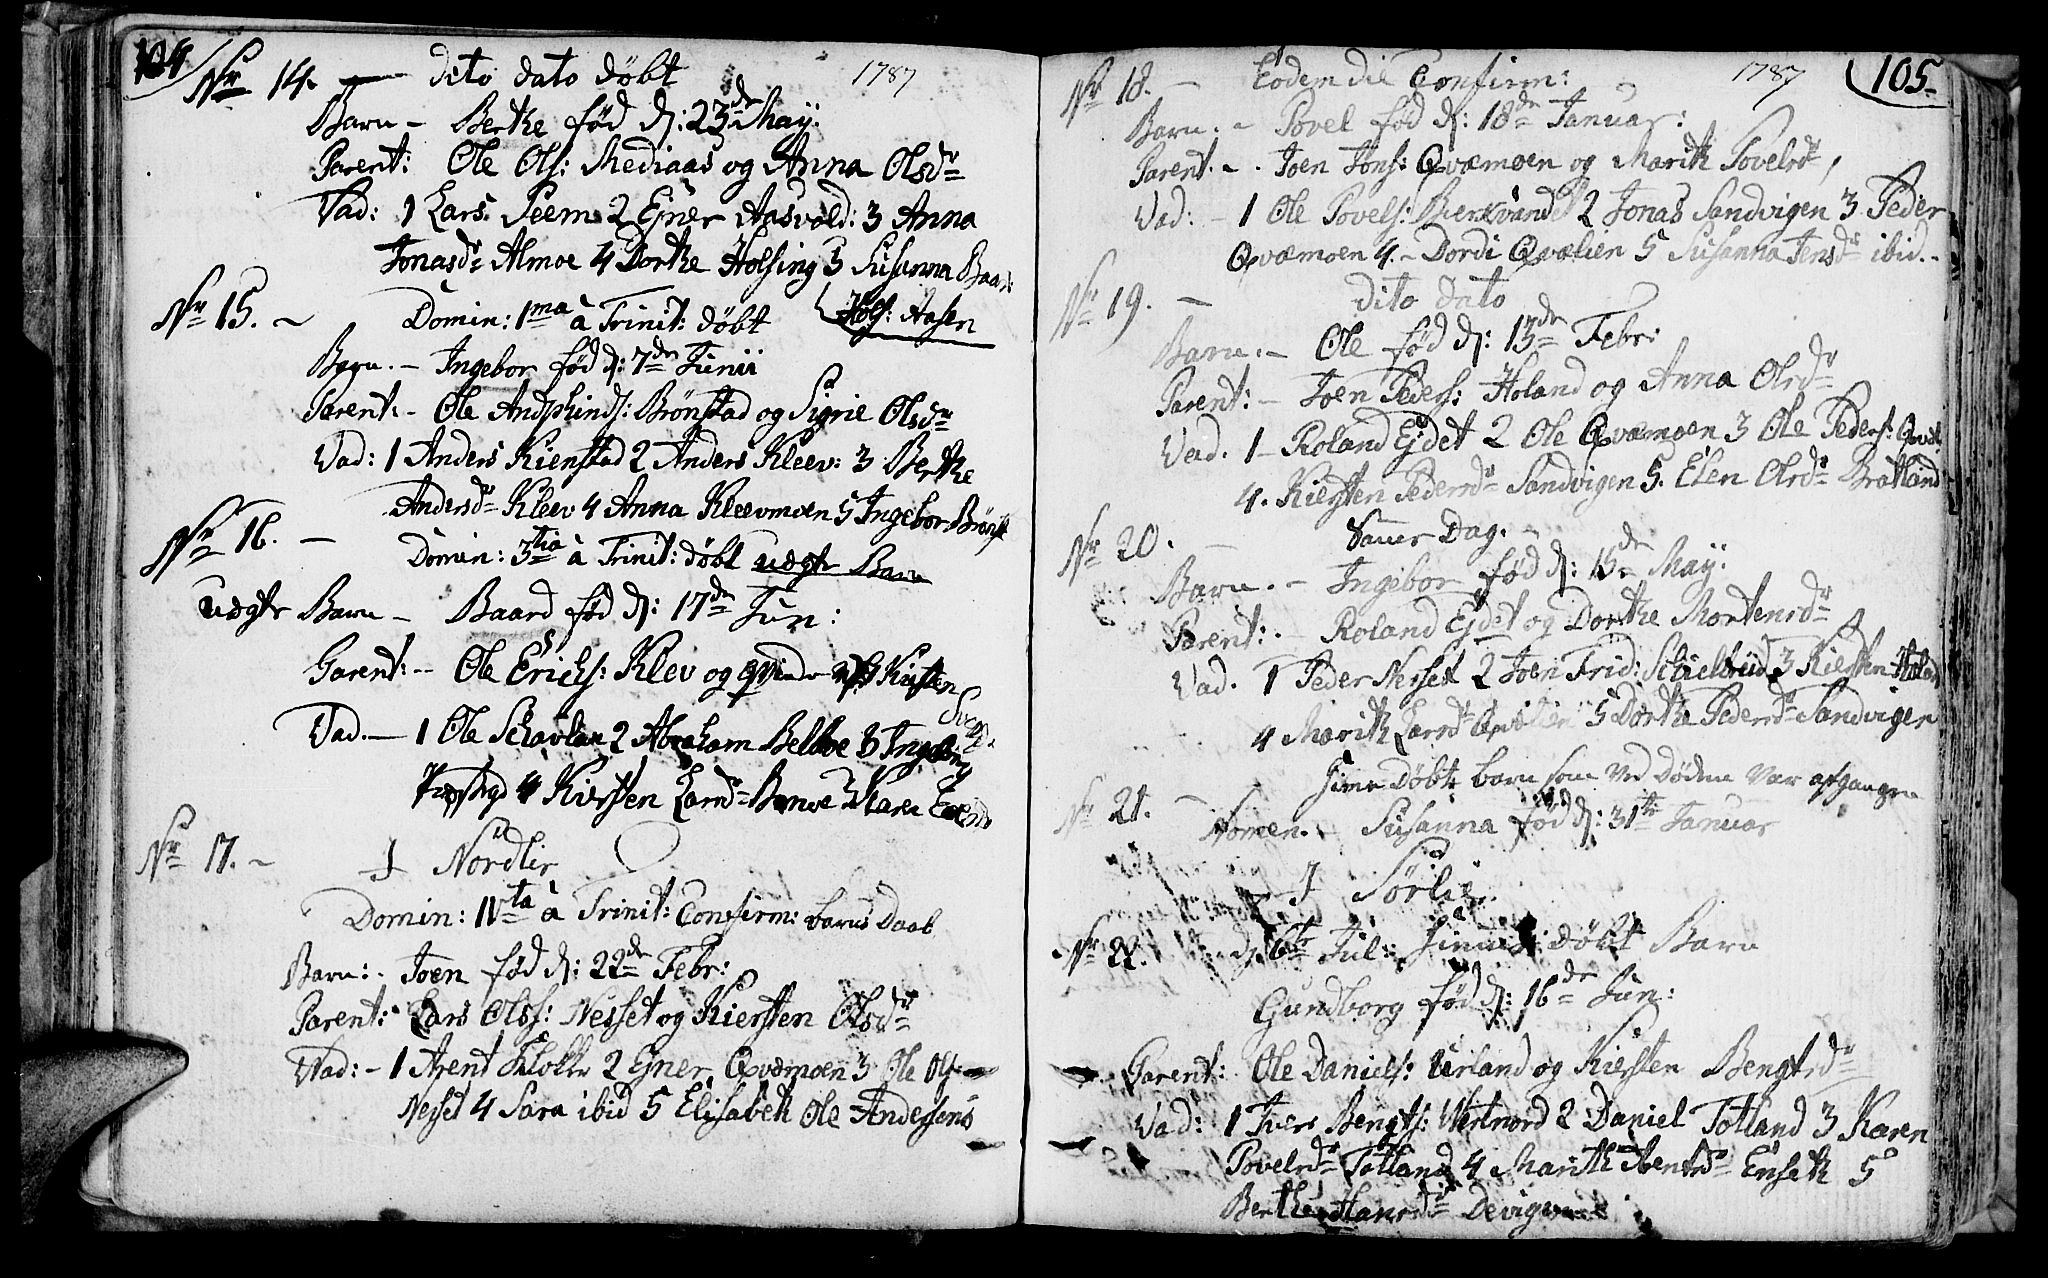 104
Nr 14. — dito dato döbt 1787
Barn – Berthe fød d: 23de May:
Parent: Ole Ols: Mediaas og Anna Olsdr
Vad: 1 Lars Seem 2 Ejner Aasvold: 3 Anna
Jonasdr Almoe 4 Dorthe Holsing 3 Susanna Baar:
Hols: Aasen
Nr 15. – Domin: 1ma à Trinit: döbt
Barn. – Ingebor fød d: 7de Junii
Parent. – Ole Andphinds: Brønstad og Sigrie Olsdr
Vad: 1 Anders Kienstad 2 Anders Kleev: 3 Berthe
Andersdr Kleev 4 Anna Kleevmoen 5 Ingebor Brønst
Nr 16. – Domin: 3tia à Trinit: döbt uægte Barn
uægte Barn – Baard fød d: 17de Jun:
Parent: – Ole Erichs: Klev og Kirsten
Svend
Vad. – 1 Ole Schavlan 2 Abraham Belboe 3 Ingebor
4 Kirsten Larsdr Banoe 5 Karen
Nr 17. – I Nordlie
Domin: IVta à Trinit: Confirm: barns Daab
Barn: . Joen fød d: 22de Febr:
Parent: Lars Olss: Nesset og Kiersten Olsdr
Vad: – 1 Arent Klokk 2 Ejner Qvæmoen 3 Ole Ols
Nesset 4 Sara ibid 5 Elisabeth Ole Andersens
105
Nr 18. – Eodem die Confirm: 1787
Barn. – Povel fød d: 18de Januar:
Parent. – . Joen Jons: Qvæmoen og Marith Povelsdr,
Vad: – 1 Ole Povels: Bierkvande 2 Jonas Sandvigen 3 Peder
Qvæmoen 4. – Dordi Qvælien 5 Susanna Jensdr ibid. –
Nr 19. – dito dato
Barn. – Ole fød d: 13de Febr:
Parent: – Joen Peders: Holand og Anna Olsdr
Vad. 1 – Roland Ejdet 2 Ole Qvæmoen 3 Ole Peders: Qvæl
4. Kiersten Pedersdr Sandvigen 5. Elen Olsdr Bratland
Nr 20. – Samme Dag. –
Barn. – Ingebor fød d: 15de May:
Parent: . – Roland Ejdet og Dorthe Mortensdr
Vad. 1 Peder Nesset 2 Joen Frid: Schielbred 3 Kiersten Holand
4 Marith Larsdr Qvælien 5 Dorthe Pedersdr Sandvigen
Nr 21. – hjemme Döbte barn som ved Døden var afgangen
Nomen. – Susanna fød d: 31te Januar
I Sörlie.
Nr 22. d: 6te Jul: hjemme döbt Barn
Gundborg fød d: 16de Jun:
Parent: Ole Daniels: Urland og Kiersten Bengtsdr
Vad: 1 Iver Bengts: Westnord 2 Daniel Totland 3 Karen
Povelsdr Totland 4 Marith Arentsdr Enseth 5
Berthe Hansdr Devigen